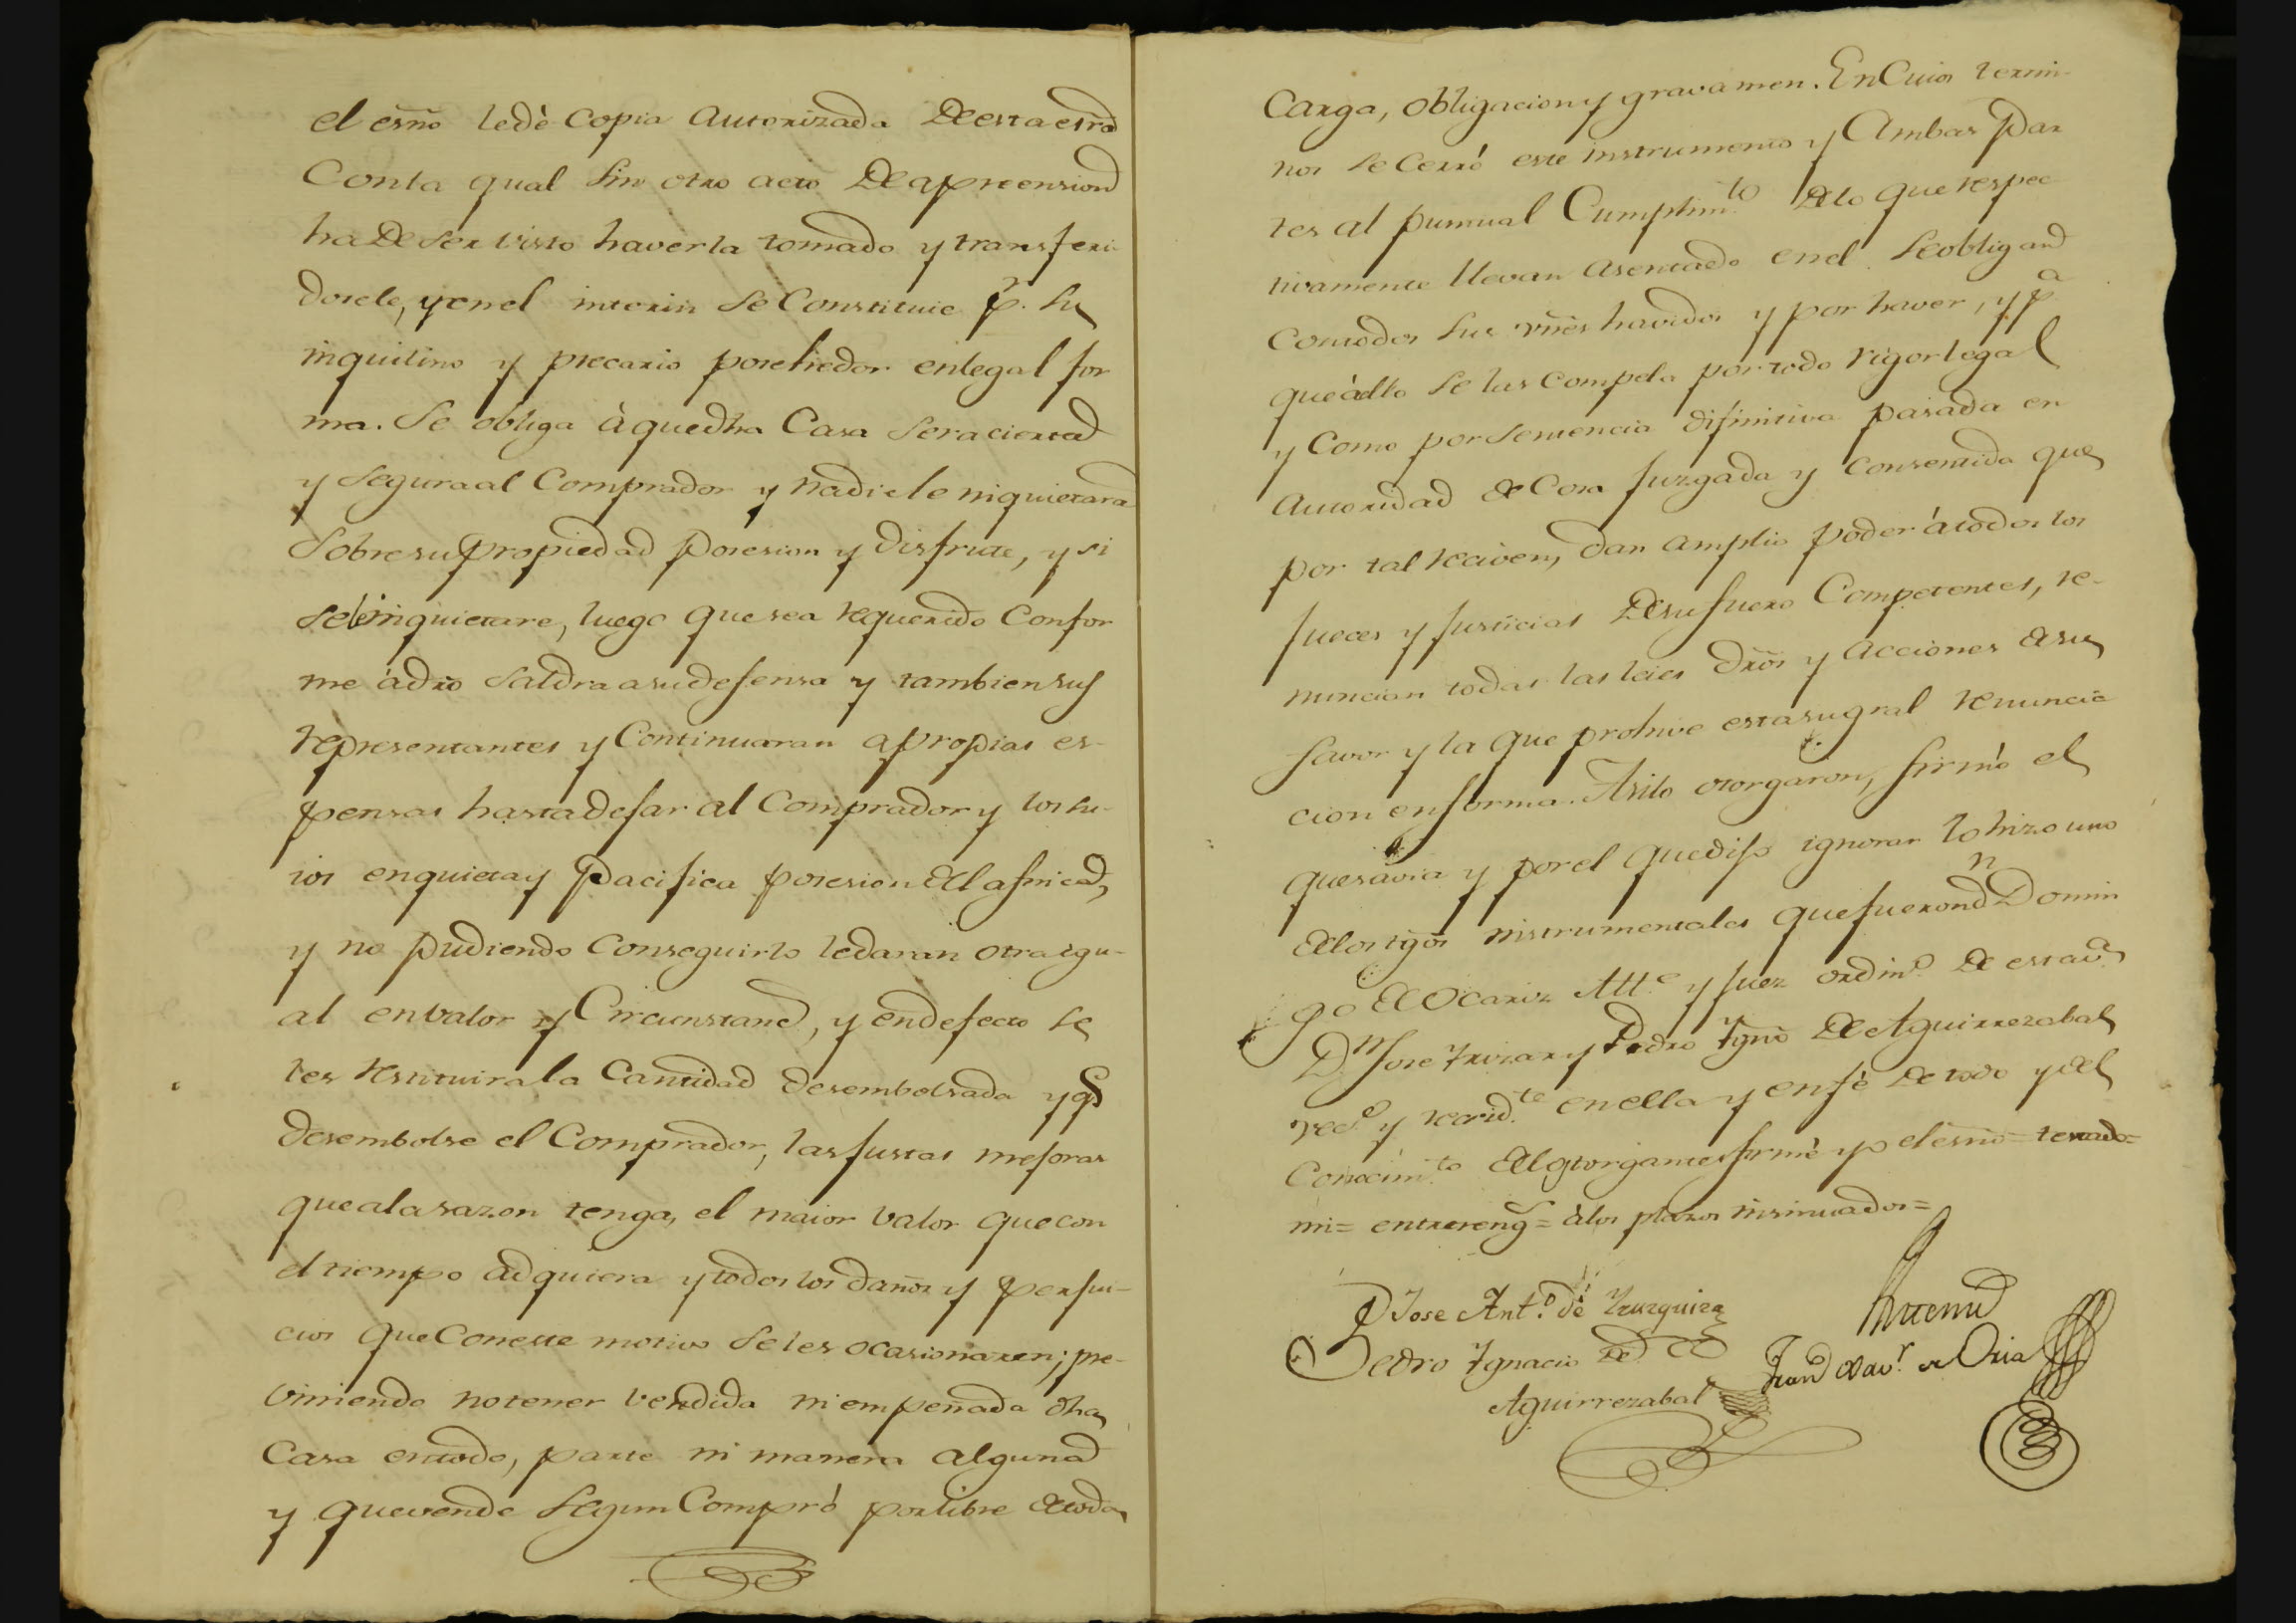 el esño ledè Copia Autorizada De esta esrã
Con la qual sin otro acto De apreension
ha De ser visto haverla tomado y transferi-
dosele, y en el interin se Constituie p.r su
inquilino y precario posehedor en legal for
ma. Se obliga à que dha Casa sera cierta
y segura al Comprador y nadie le inquietara
sobre su propiedad posesion y disfrute, y si
sele inquietare, luego que sea requerido Confor
me à dro saldra a su defensa y tambien sus
representantes y Continuaran a propias es-
pensas hasta dejar al Comprador y los su-
ios en quieta y Pacifica posesion de la finca,
y no pudiendo Conseguirlo le daran otra igu-
al en valor y Circunstanc.s, y en defecto se
les restituira la Cantidad desembolsada y q.e
desembolse el Comprador, las justas mejoras
que a la sazon tenga, el maior valor que con
el tiempo adquiera y todos los daños y perjui-
cios que Con este motivo se les ocasionaren; pre-
viniendo no tener vendida ni empeñada dha
Casa en todo, parte ni manera alguna
y que vende segun Compró por libre de toda
Carga, obligacion y gravamen. En Cuios termi-
nos se Cerró este instrumento y Ambas Par
tes al puntual Cumplim.to de lo que respec-
tivamente llevan asentado en el se obligan
con todos sus vnês havidos y por haver, y p.a
que à ello se les compela por todo rigor legal
y Como por sentencia difinitiva pasada en
autoridad de Cosa juzgada y consentida que
por tal reciven, dan amplio poder à todos los
jueces y justicias De su fuero Competentes, re-
nuncian todas las leies drõs y acciones de su
favor y la que prohive esta su gral renuncia
cion en forma. Asi lo otorgaron, firmó el
que savia y por el que dijo ignorar lo hizo uno
de los tgõs instrumentales que fueron D.n Domin
g.o de Ocariz Alt.e y juez ordin.o De esta v.a
D.n Jose Irizar y Pedro Ygnõ De Aguirrezabal
vec.s y recid.te en ella y en fé de todo y del
Conocim.to del otorgante firmè yo el esño = testado =
mi = entrereng.s = à los plazos insinuados =
D Jose Ant.o de Yzuzquiza
Antemi
Pedro Ygnacio De
Fran.co Xav.r de Oria
Aguirrezabal